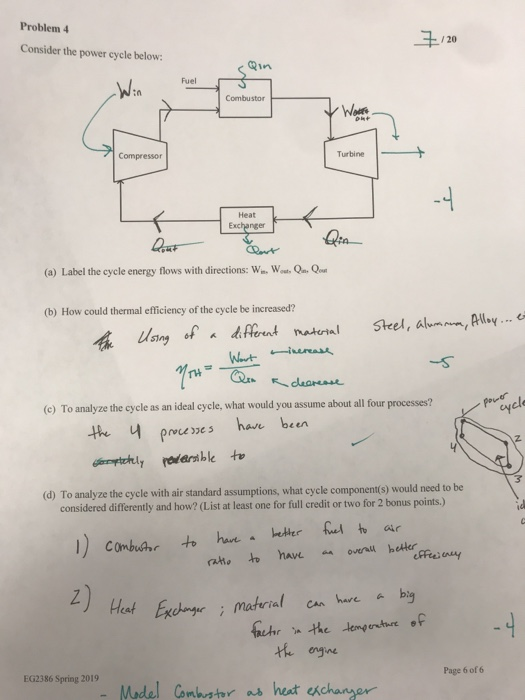 Problem 4
7 / 20
Consider the power cycle below:
Qin
Win
Fuel
Combustor
Wout
Compressor
Turbine
-4
Heat
Exchanger
Qout
Qin
Qout
(a) Label the cycle energy flows with directions: Win, Wout, Qin, Qout
(b) How could thermal efficiency of the cycle be increased?
Using of a different material Steel, aluminum, Alloy...
ηTH = Wout / Qin
increase
decrease
-5
(c) To analyze the cycle as an ideal cycle, what would you assume about all four processes?
power cycle
the 4 processes have been
reversible to
4
2
3
(d) To analyze the cycle with air standard assumptions, what cycle component(s) would need to be
considered differently and how? (List at least one for full credit or two for 2 bonus points.)
1) Combustor to have a better fuel to air
ratio to have an overall better efficiency
2) Heat Exchanger ; material can have a big
factor in the temperature of
the engine
-4
Page 6 of 6
EG2386 Spring 2019
- Model Combustor as heat exchanger